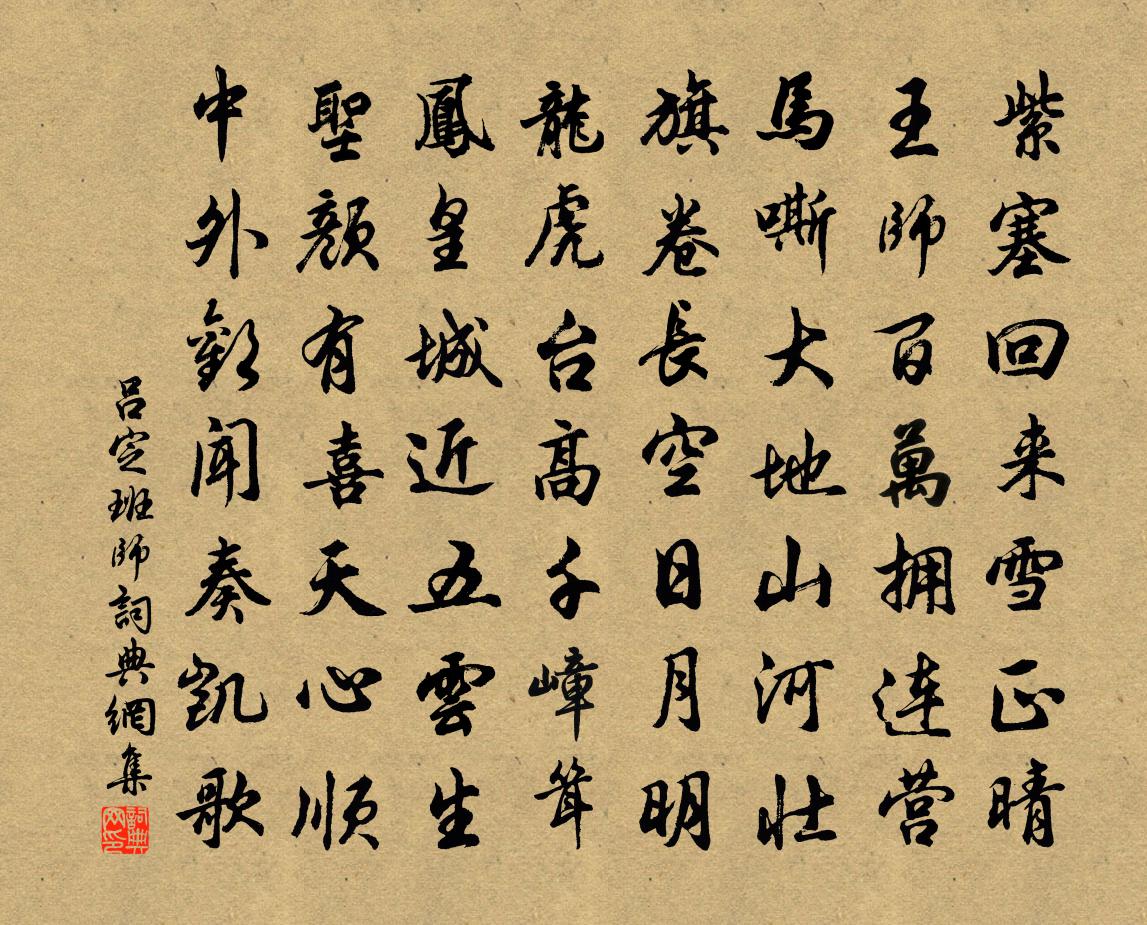 紫塞回来雪正晴
王師百萬拥连营
馬嘶大地山河壮
旗卷長空日月明
龍虎台高千嶂耸
鳳皇城近五雲生
聖顔有喜天心順
中外歡闻奏凯歌
吕定班師詞典網集
詞典网印